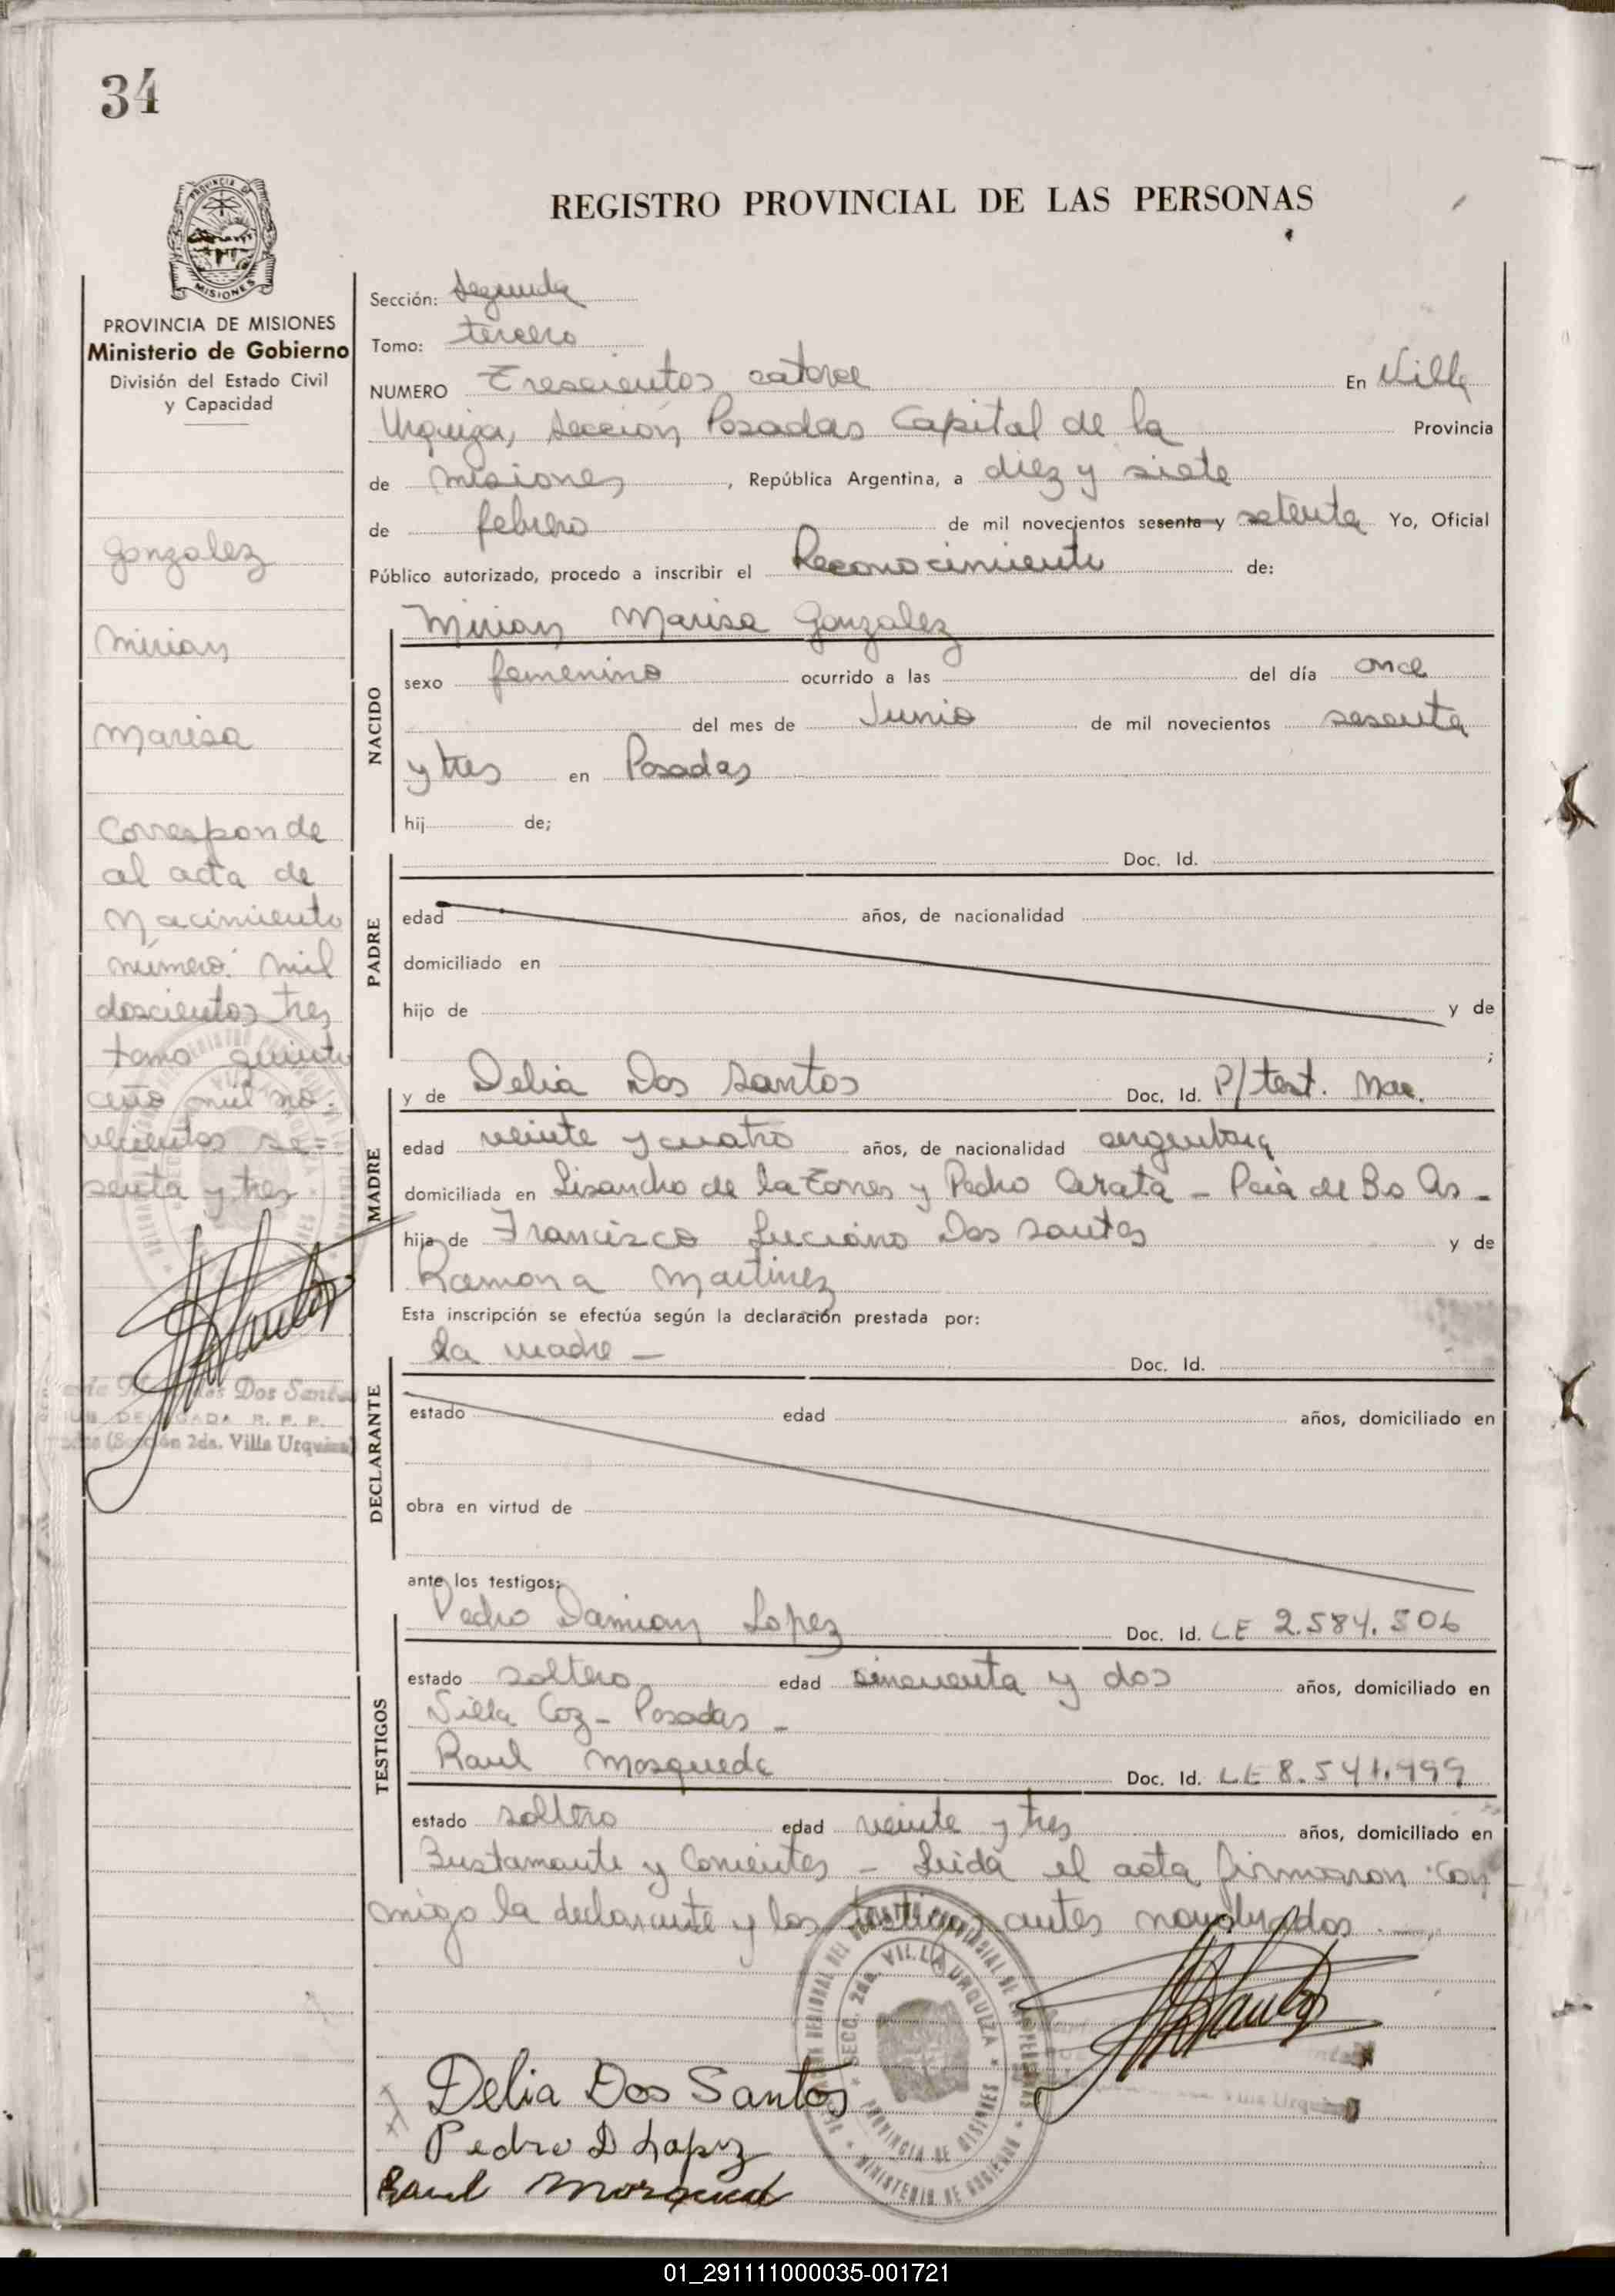 34
PROVINCIA DE MISIONES
PROVINCIA DE MISIONES
Ministerio de Gobierno
División del Estado Civil
y Capacidad
Gonzalez
Mirian
Marisa
Corresponde
al acta de
Nacimiento
número: mil
doscientos tres
tomo quinto
año mil no-
vecientos se=
senta y tres
Dos Santos
SUB DELEGADA R. P. P.
(Sección 2da. Villa Urquiza)
REGISTRO PROVINCIAL DE LAS PERSONAS
Sección: Segunda
Tomo: tercero
NUMERO Trescientos catorce En Villa
Urquiza, Sección Posadas Capital de la Provincia
de Misiones, República Argentina, a diez y siete
de febrero de mil novecientos sesenta y setenta Yo, Oficial
Público autorizado, procedo a inscribir el Reconocimiento de:
Mirian Marisa Gonzalez
NACIDO
sexo femenino ocurrido a las del día once
del mes de Junio de mil novecientos sesenta
y tres en Posadas
hij de;
PADRE
Doc. Id.
edad años, de nacionalidad
domiciliado en
hijo de y de
;
MADRE
y de Delia Dos Santos Doc. Id. P/test. Nac.
edad veinte y cuatro años, de nacionalidad argentina
domiciliada en Lisandro de la Torres y Pedro Arata - Pcia de Bs As -
hija de Francisco Luciano Dos Santos y de
Ramona Martinez
Esta inscripción se efectúa según la declaración prestada por:
la madre - Doc. Id.
DECLARANTE
estado edad años, domiciliado en
obra en virtud de
ante los testigos:
TESTIGOS
Pedro Damian Lopez Doc. Id. LE 2.584.506
estado soltero edad cincuenta y dos años, domiciliado en
Villa Coz - Posadas -
Raul Mosqueda Doc. Id. LE 8.541.999
estado soltero edad veinte y tres años, domiciliado en
Bustamante y Corrientes - Leida el acta firmaron con
migo la declarante y los testigos antes nombrados. -
SECC. 2da. VILLA URQUIZA
PROVINCIA DE MISIONES
MINISTERIO DE GOBIERNO
Delia Dos Santos
Pedro D Lopez
Raul Mosqued
01_291111000035-001721